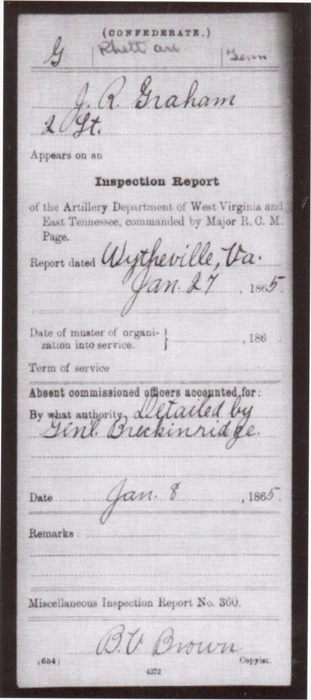 (CONFEDERATE.)
G Rhett Art Tenn
J. R. Graham
2 Lt.
Appears on an
Inspection Report
of the Artillery Department of West Virginia and
East Tennessee, commanded by Major R. C. M.
Page.
Report dated Wytheville, Va.
Jan. 27, 1865.
Date of muster of organi-
zation into service. } , 186
Term of service
Absent commissioned officers accounted for:
By what authority, Detailed by
Genl. Breckinridge.
Date Jan. 8, 1865.
Remarks
Miscellaneous Inspection Report No. 360.
B. V. Brown
(654) Copyist.
4372